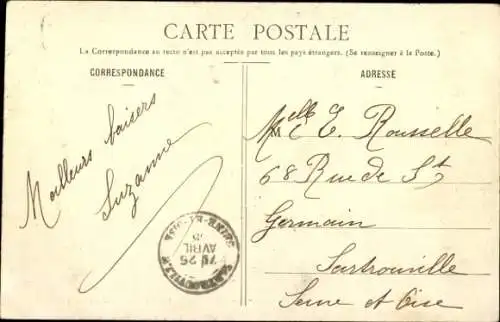 CARTE POSTALE
La Correspondance au recto n'est pas acceptée par tous les pays étrangers. (Se renseigner à la Poste.)
CORRESPONDANCE
Meilleurs baisers
Suzanne
ADRESSE
Melle E. Rousselle
68 Rue de St
Germain
Sartrouville
Seine et Oise
SARTROUVILLE
7 26
AVRIL
SEINE-ET-OISE